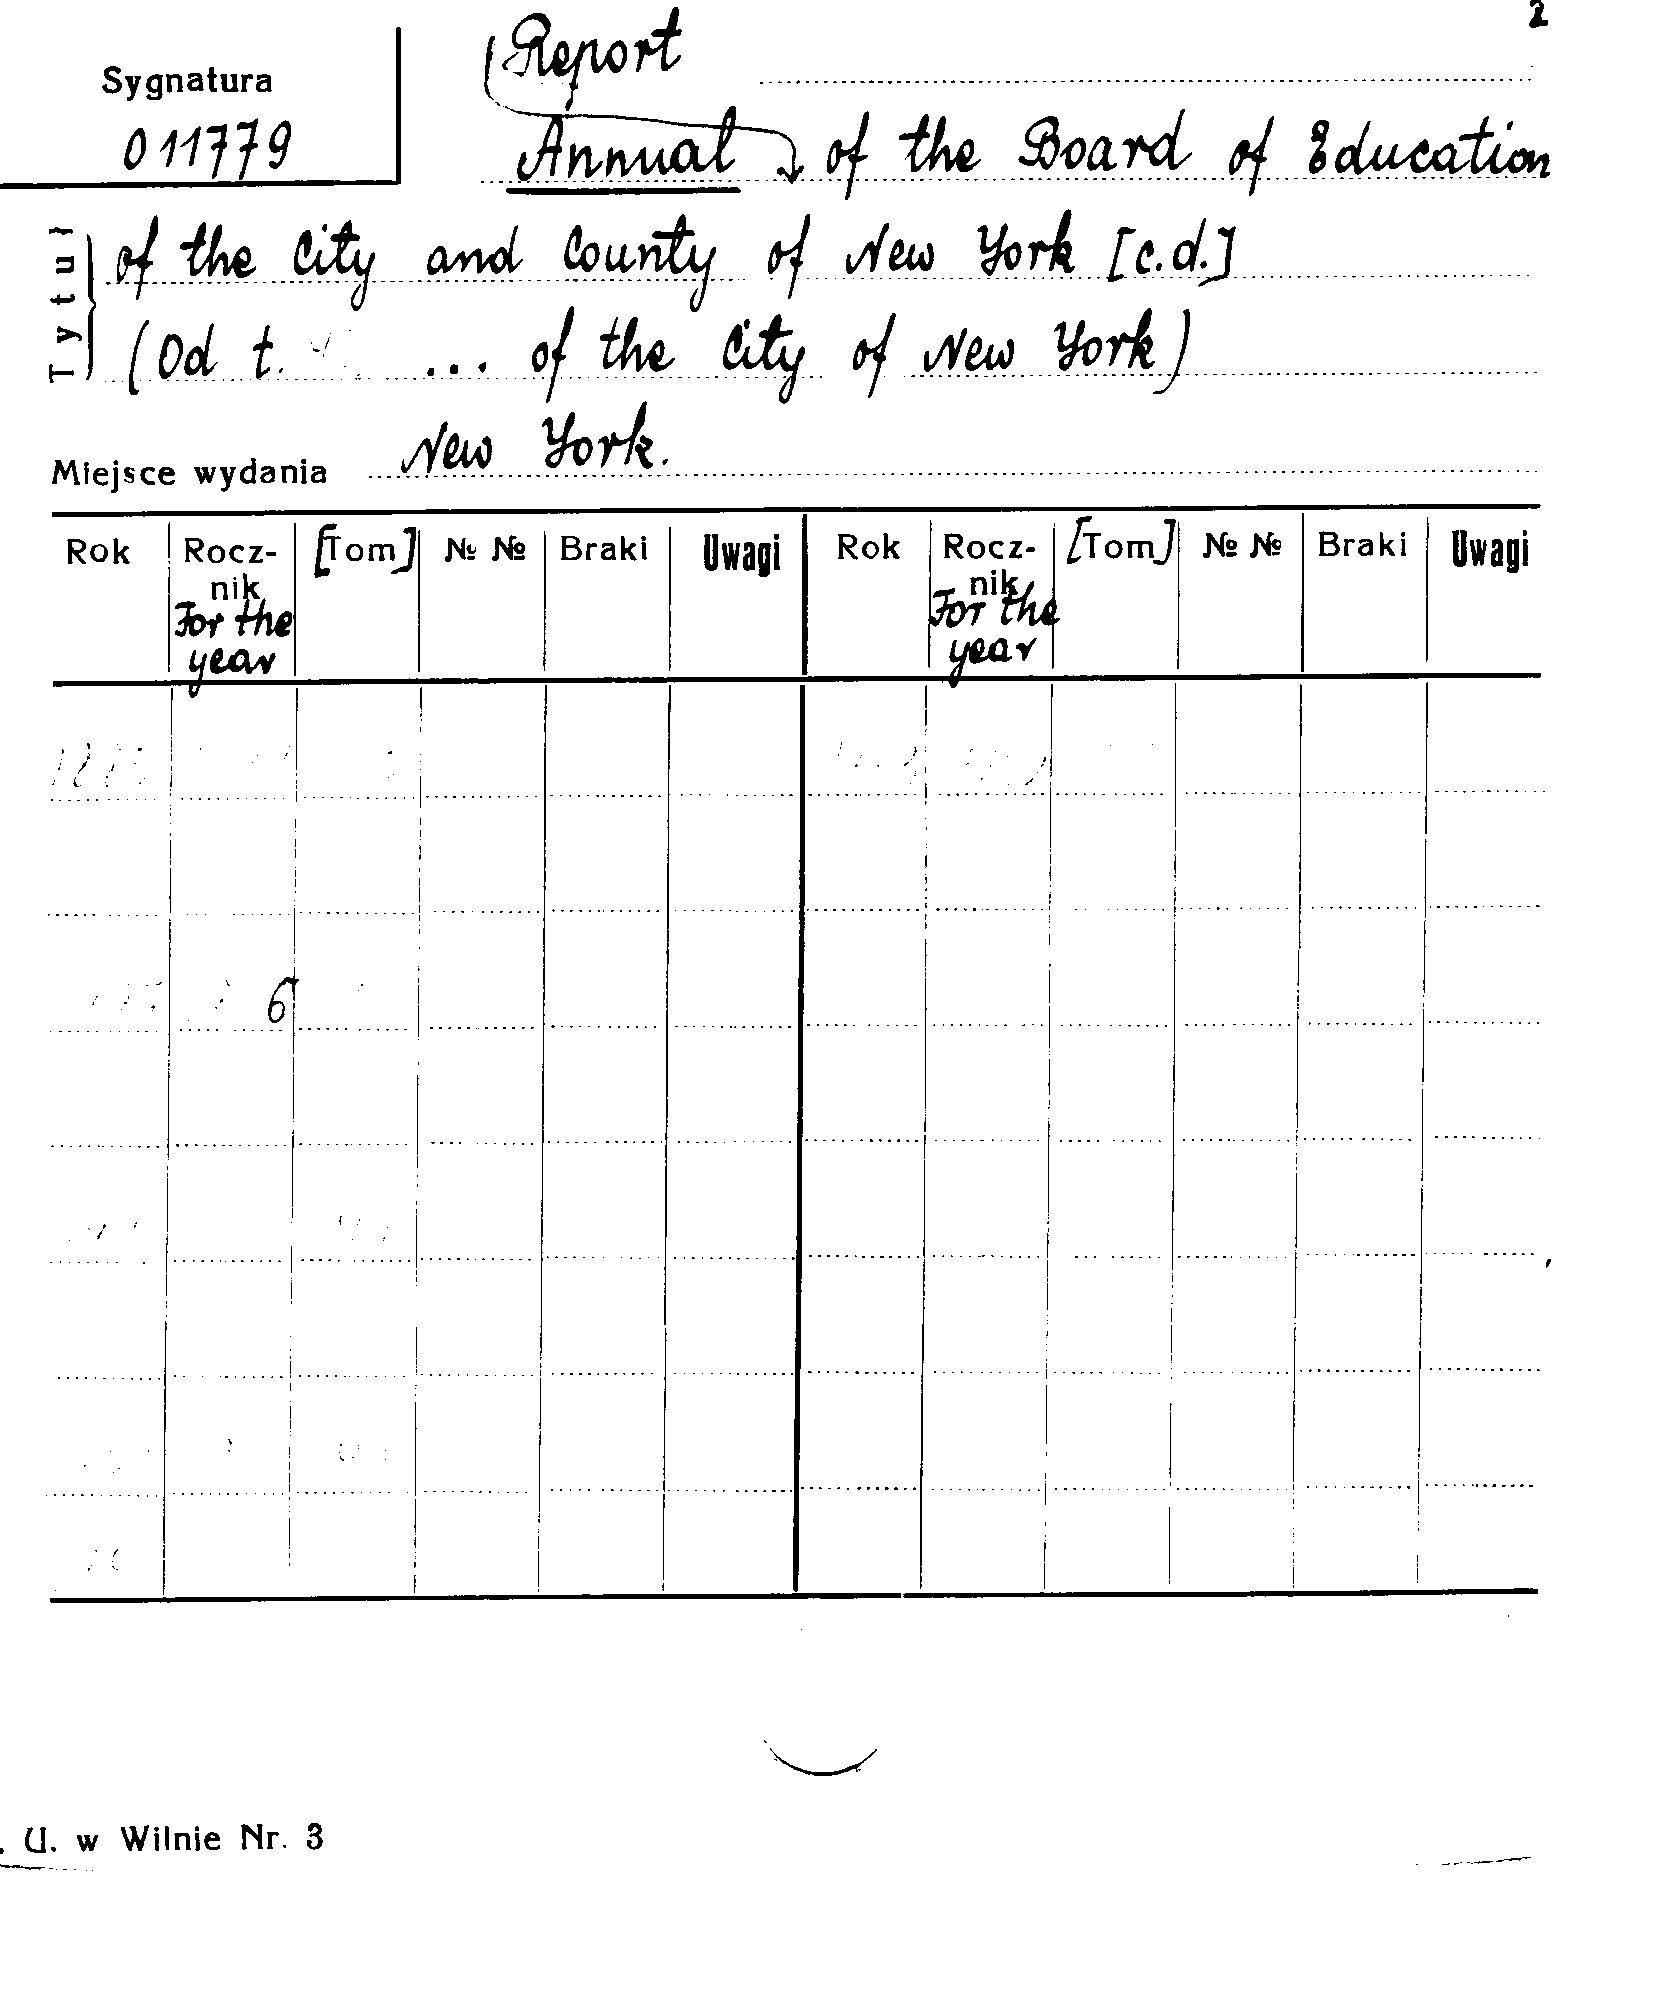 2
Sygnatura
011779
Report
Annual of the Board of Education
Tytuł
of the City and County of New York [c.d.]
(Od t. ... of the City of New York)
Miejsce wydania New York.
Rok Rocz- [Tom] № № Braki Uwagi Rok Rocz- [Tom] № № Braki Uwagi
nik nik
For the For the
year year
6
. U. w Wilnie Nr. 3